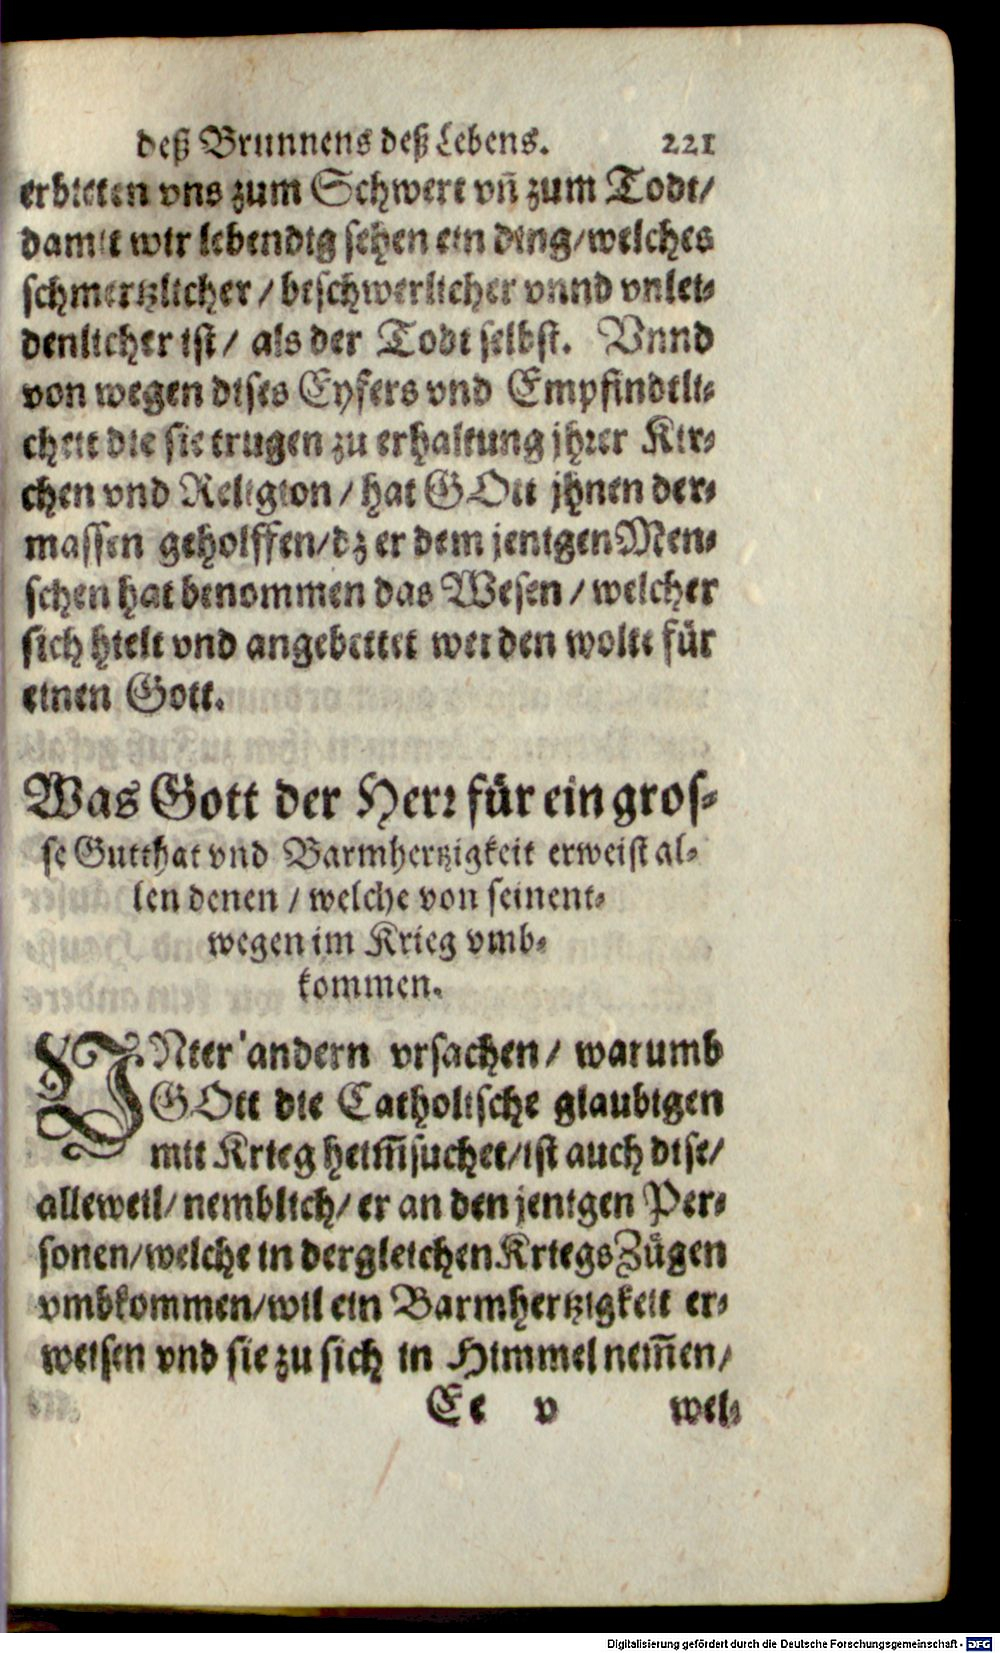 deß Brunnens deß Lebens. 221
erbieten vns zum Schwert vñ zum Todt/
damit wir lebendig sehen ein ding/welches
schmertzlicher / beschwerlicher vnnd vnlei-
denlicher ist/ als der Todt selbst. Vnnd
von wegen dises Eyfers vnd Empfindtli-
cheit die sie trugen zu erhaltung jhrer Kir-
chen vnd Religion / hat GOtt jhnen der-
massen geholffen/dz er dem jenigen Men-
schen hat benommen das Wesen / welcher
sich hielt vnd angebettet werden wolte für
einen Gott.
Was Gott der Herr für ein gros-
se Gutthat vnd Barmhertzigkeit erweist al-
len denen / welche von seinent-
wegen im Krieg vmb-
kommen.
VNter andern vrsachen/ warumb
GOtt die Catholische glaubigen
mit Krieg heim̃suchet/ist auch dise/
alleweil/ nemblich/ er an den jenigen Per-
sonen/welche in dergleichen KriegsZügen
vmbkommen/wil ein Barmhertzigkeit er-
weisen vnd sie zu sich in Himmel nem̃en/
Ee v wel-
Digitalisierung gefördert durch die Deutsche Forschungsgemeinschaft - DFG